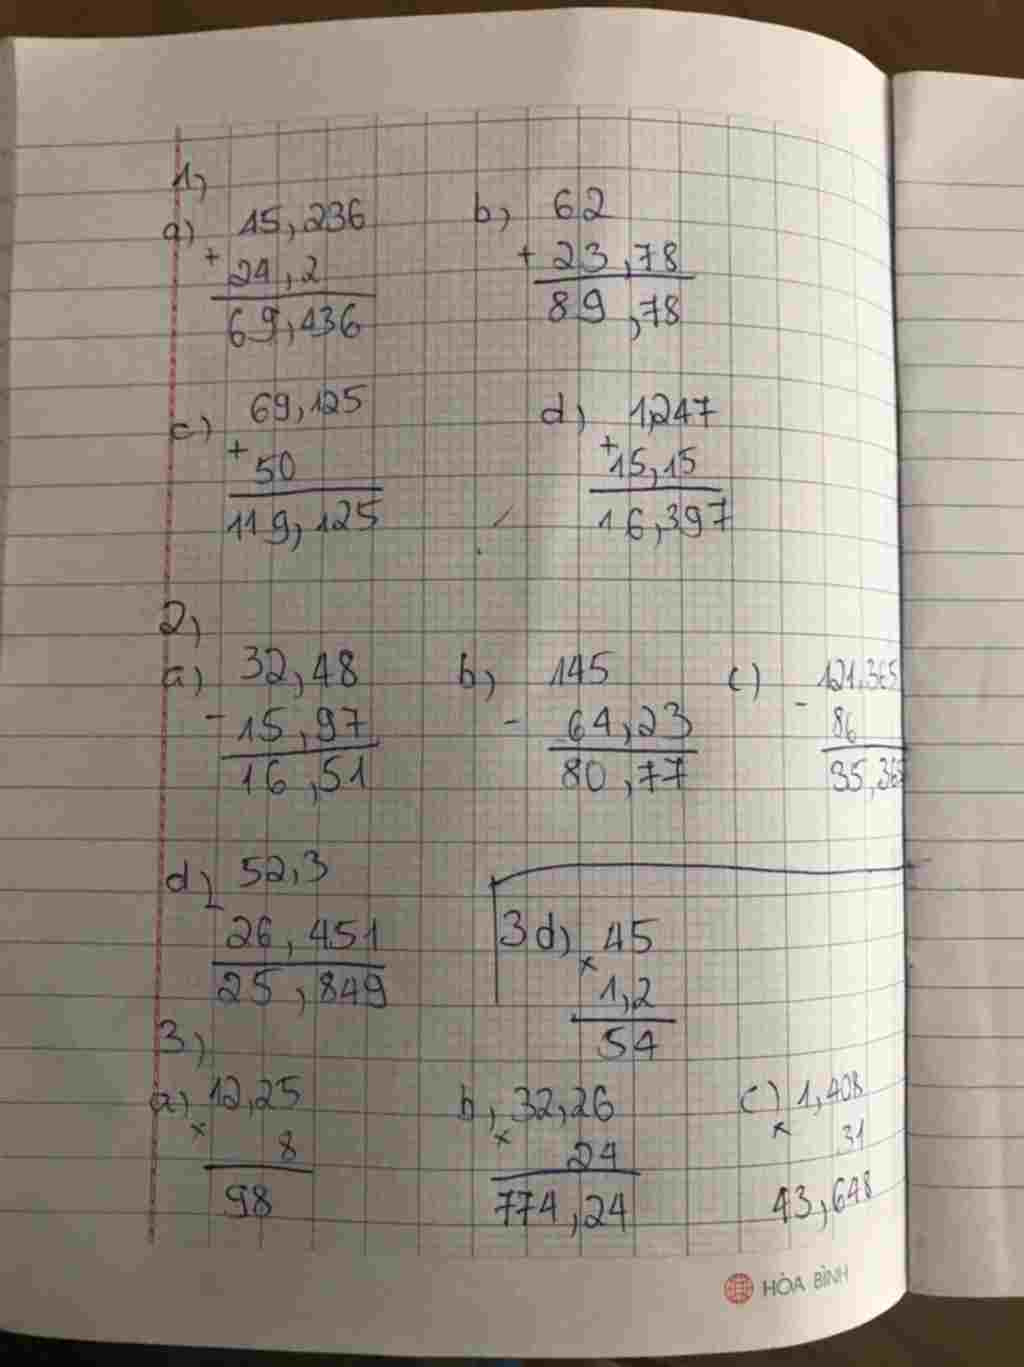 1,
a) 45,236
+ 24,2
69,436
b, 62
+ 23,78
89,78
c) 69,125
+ 50
119,125
d) 1,247
+ 15,15
16,397
2,
a) 32,48
- 15,97
16,51
b, 145
- 64,23
80,77
c) 121,365
- 86
35,365
d, 52,3
- 26,451
25,849
3d) 45
× 1,2
54
3)
a) 12,25
× 8
98
b, 32,26
× 24
774,24
c) 1,408
× 31
43,648
HÒA BÌNH